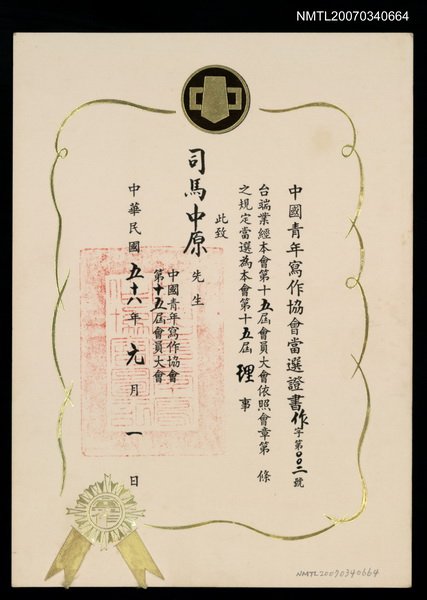 NMTL20070340664
中國青年寫作協會當選證書作字第00二號
台端業經本會第十五屆會員大會依照會章第　條
之規定當選為本會第十五屆理事
此致
司馬中原先生
中國青年寫作協會
第十五屆會員大會
中華民國五十八年元月一日
NMTL20070340664